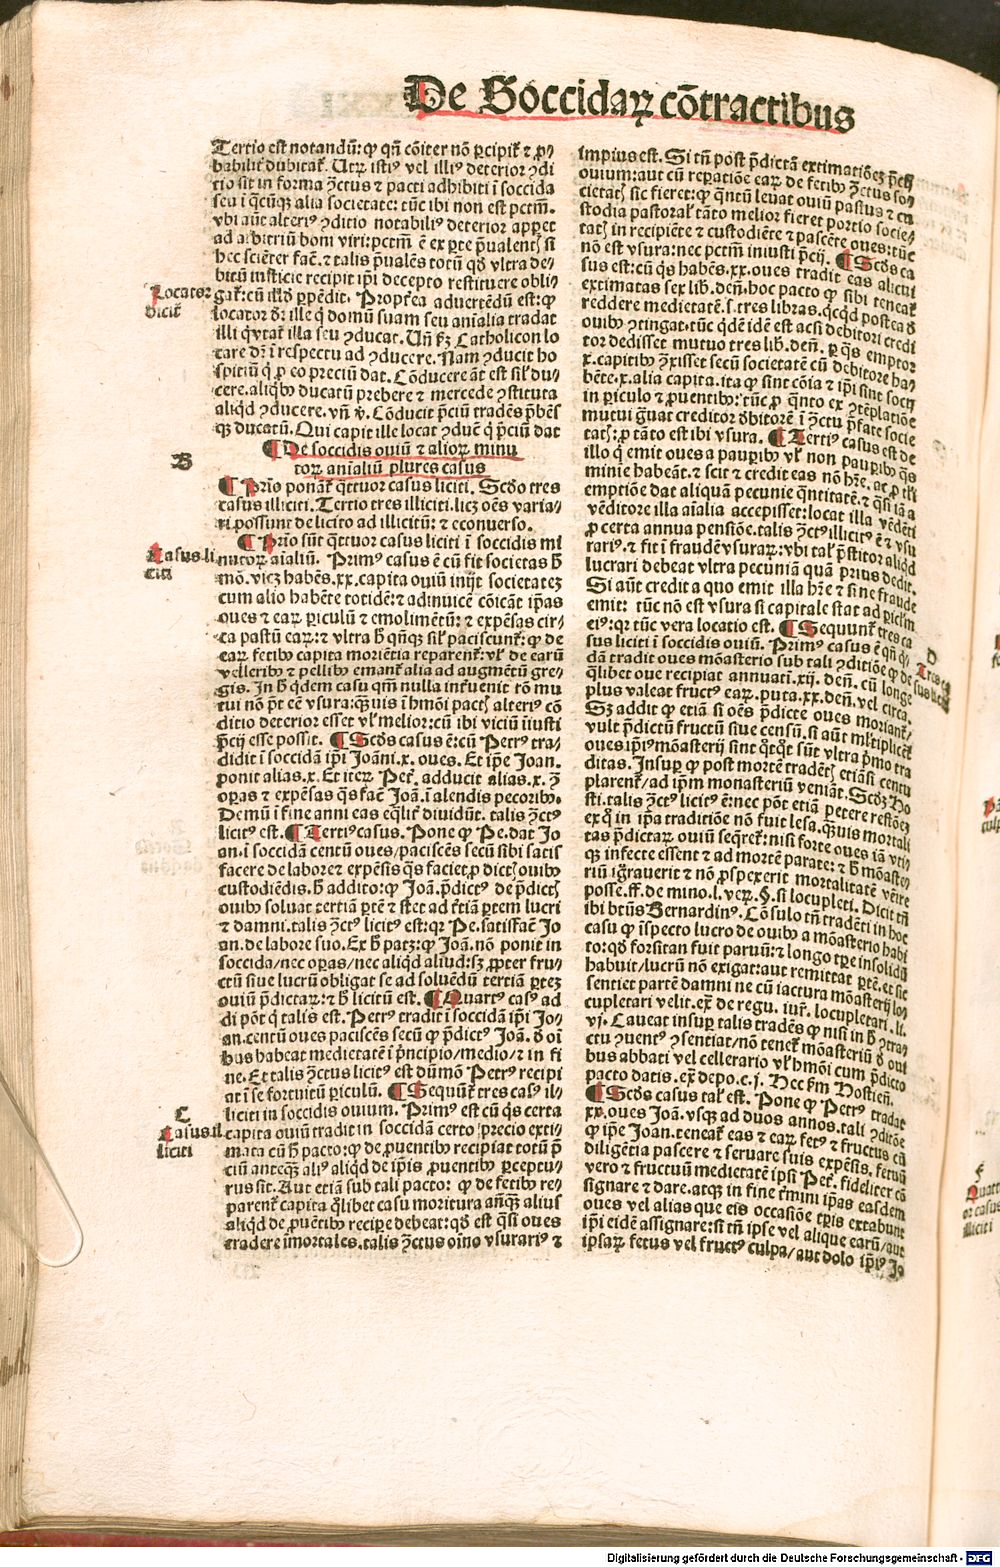 De Soccidaꝝ cōtractibus
Tertio est notandū: ꝙ qñ cōiter nō ꝑcipit᷑ ⁊ ꝓ/
babilit᷑ dubitat᷑. Utꝝ isti⁹ vel illi⁹ deterior ꝯdi
tio sit in forma ꝯctus ⁊ pacti adhibiti ī soccida
seu ī q̄cūqꝫ alia societate: tūc ibi non est pctm̄.
vbi aūt alteri⁹ ꝯditio notabilis deterior appet
ad arbitriū boni viri: pctm̄ ē ex ꝑte p̄ualentꝭ si
hec sciēter faẽ. ⁊ talis p̄uales totū qd̓ vltra de/
bitū iniustitie recipit ip̄i decepto restituere obli/
gat᷑: cū illd̓ ꝑpēdit. Propt̓ea aduertēdū est: ꝙ
locator dr̄: ille q̄ domū suam seu aīalia tradat
illi q̄ vtat᷑ illa seu ꝯducat. Uñ ẜm Catholicon lo
care dr̄ ī respectu ad ꝯducere. Nam ꝯducit ho
spitiū q̄ ꝓ eo preciū dat. Cōducere aūt est sil̓ du/
cere. aliqn̄ ducatū prebere ⁊ mercede ꝯstituta
aliqd̓ ꝯducere. vñ ꝟ. Cōducit p̄ciū tradēs p̄bēs
qꝫ ducatū. Qui capit ille locat ꝯduc̄ q̄ p̄ciū dat
¶ De soccidis ouiū ⁊ alioꝝ minu
toꝝ anīaliū plures casus
¶ Prīo ponant᷑ q̄ttuor casus liciti. Scd̓o tres
casus illiciti. Tertio tres illiciti. licꝫ oēs varia/
ri possunt de licito ad illicitū: ⁊ econuerso.
¶ Prīo sūt q̄ttuor casus liciti ī soccidis mi
nutoꝝ aīaliū. Prim⁹ casus ē cū fit societas h̄
mō. vicꝫ habēs .xx. capita ouiū inijt societatez
cum alio habēte totidē: ⁊ adinuicē cōicāt ip̄as
oues ⁊ eaꝝ ꝑiculū ⁊ emolimētū: ⁊ expēsas cir/
ca pastū eaꝝ: ⁊ vltra h̄ qn̄qꝫ sil̓ paciscunt᷑: ꝙ de
eaꝝ fetibꝰ capita moriētia reparent᷑: vl̓ de earū
velleribꝰ ⁊ pellibꝰ emant᷑ alia ad augmētū gre/
gis. In h̄ q̄dem casu qm̄ nulla int̓uenit rō mu
tui nō pt̄ eē vsura: q̄uis ī hm̄oi pactꝭ alteri⁹ cō
ditio deterior esset vl̓ melior: cū ibi viciū iiusti
p̄cij esse possit. ¶ Scd̓s casus ē: cū Petr⁹ tra/
didit ī soccidā ip̄i Joāni .x. oues. Et ip̄e Joan.
ponit alias .x. Et iteꝝ Pet̓. adducit alias .x. ꝫ
oꝑas ⁊ expēsas q̄s faẽ Joā. ī alendis pecoribꝰ.
Demū ī fine anni eas eq̄lit̓ diuidūt. talis ꝯct⁹
licit⁹ est. ¶ Terti⁹ casus. Pone ꝙ Pe. dat Jo
an. ī soccidā centū oues / paciscēs secū sibi satis
facere de labore ⁊ expēsis q̄s faciet ꝓ dictꝭ ouibꝰ
custodiēdis. h̄ addito: ꝙ Joā. p̄dict⁹ de p̄dictꝭ
ouibꝰ soluat tertiā ꝑtē ⁊ stet ad t̓tiā ꝑtem lucri
⁊ damni. talis ꝯct⁹ licit⁹ est: qꝛ Pe. satisfaẽ Jo
an. de labore suo. Ex h̄ patꝫ: ꝙ Joā. nō ponit in
soccida / nec oꝑas / nec aliqd̓ aliud: sꝫ ꝓpter fru/
ctū siue lucrū obligat se ad soluēdū tertiā ꝑtez
ouiū p̄dictaꝝ: ⁊ h̄ licitū est. ¶ Quart⁹ cas⁹ ad
di pōt q̄ talis est. Petr⁹ tradit ī soccidā ip̄i Jo/
an. centū oues paciscēs secū ꝙ p̄dict⁹ Joā. d̓ oī
bus habeat medietatē ī p̄ncipio / medio / ⁊ in fi
ne. Et talis ꝯctus licit⁹ est dū mō Petr⁹ recipi
at ī se fortuitū ꝑiculū. ¶ Sequunt᷑ tres cas⁹ il/
liciti in soccidis ouium. Prim⁹ est cū q̄s certa
capita ouiū tradit in soccidā certo precio exti/
mata cū h̄ pacto: ꝙ de ꝓuentibꝰ recipiat totū p̄
ciū anteqꝫ ali⁹ aliqd̓ de ip̄is ꝓuentibꝰ ꝑceptu/
rus sit. Aut etiā sub tali pacto: ꝙ de fetibꝰ re/
parent᷑ capita q̄libet casu moritura añqꝫ alius
aliqd̓ de ꝓuētibꝰ recipe debeat: qd̓ est q̄si oues
tradere īmortales. talis ꝯctus oīno vsurari⁹ ⁊
Locator
dicit᷑
B
Casus li
citi
C
Casus il
liciti
impius est. Si tn̄ post p̄dictā extimatiōez p̄cij
ouium: aut cū reꝑatiōe eaꝝ de fetibꝰ ꝯctus so/
cietatꝭ sic fieret: ꝙ q̄ntū leuat ouiū pastus ⁊ cu
stodia pastoral̓ tāto melior fieret portio socie/
tatꝭ in recipiēte ⁊ custodiēte ⁊ pascēte oues: tūc
nō est vsura: nec pctm̄ iniusti p̄cij. ¶ Scd̓s ca
sus est: cū q̄s habēs .xx. oues tradit eas alicui
extimatas sex lib. deñ. hoc pacto ꝙ sibi teneat᷑
reddere medietatē .s. tres libras. qcqd̓ postea d̓
ouibꝰ ꝯtingat. tūc q̄dē idē est acsi debitori credi
tor dedisset mutuo tres lib. deñ. ꝓ q̄s emptor
x. capitibꝰ ꝯxisset secū societatē cū debitore ha/
bēte .x. alia capita. ita ꝙ sint cōia ⁊ ip̄i sint socij
in ꝑiculo ⁊ ꝓuentibꝰ: tūc ꝓ q̄nto ex ꝯtēplatiōe
mutui grauat creditor d̓bitorē ī ꝯctu p̄fate socie
tatꝭ: ꝓ tāto est ibi vsura. ¶ Terti⁹ casus est de
illo q̄ emit oues a pauꝑibꝰ vl̓ non pauꝑibꝰ q̄s
minie habeāt. ⁊ scit ⁊ credit eas nō hr̄e. ac ꝓ tl̓i
emptiōe dat aliquā pecunie q̄ntitatē. ⁊ q̄si iā a
vēditore illa aīalia accepisset: locat illa vēditi
ꝓ certa annua pensiōe. talis ꝯct⁹ illicit⁹ ē ⁊ vsu
rari⁹. ⁊ fit ī fraudē vsuraꝝ: vbi tal̓ p̄stitor aliqd̓
lucrari debeat vltra pecuniā quā prius dedit.
Si aūt credit a quo emit illa hr̄e ⁊ sine fraude
emit: tūc nō est vsura si capitale stat ad ꝑicl̓m
ei⁹: qꝛ tūc vera locatio est. ¶ Sequunt᷑ tres ca
sus liciti ī soccidis ouiū. Prim⁹ casus ē qn̄ q̄/
dā tradit oues mōasterio sub tali ꝯditiōe ꝙ de
q̄libet oue recipiat annuati .xij. deñ. cū longe
plus valeat fruct⁹ eaꝝ. puta .xx. deñ. vel circa.
Sꝫ addit ꝙ etiā si oēs p̄dicte oues moriant᷑ /
vult p̄dictū fructū siue censū. si aūt ml̓tiplicent᷑
oues ip̄i⁹ mōasterij sint q̄tq̄t sūt vltra p̄mo tra
ditas. Insuꝑ ꝙ post mortē tradētꝭ etiāsi centū
plarent᷑ / ad ip̄m monasteriū veniāt. Scd̓z Ho
sti. talis ꝯct⁹ licit⁹ ē: nec pōt etiā petere restōez
ex q̄ in ip̄a traditiōe nō fuit lesa. q̄uis mortali
tas p̄dictaꝝ ouiū seq̄ret᷑: nisi forte oues iā vtiqꝫ
infecte essent ⁊ ad mortē parate: ⁊ h̄ mōaste/
riū igrauerit ⁊ nō ꝓspexerit mortalitatē vēire
posse. ff. de mino. l. veꝝ. §. si locupleti. Dicit tn̄
ibi btūs Bernardin⁹. Cōsulo tn̄ tradēti in hoc
casu ꝙ īspecto lucro de ouibꝰ a mōasterio habi
to: qd̓ forsitan fuit paruū: ⁊ longo tꝑe insolidū
habuit / lucrū nō exigat: aut remittat ꝑtē. et sic
sentiet partē damni ne cū iactura mōasterij lo/
cupletari velit. ex̄ de regu. iur̄. locupletari. li.
vj. Caueat insuꝑ talis tradēs ꝙ nisi in h̄ ꝯtra/
ctu ꝯuent⁹ ꝯsentiat / nō tenet᷑ mōasteriū d̓ oui
bus abbati vel cellerario vl̓ hm̄oi cum p̄dicto
pacto datis. ex̄ depo. c. j. Hec ẜm Hostieñ.
¶ Scd̓s casus tal̓ est. Pone ꝙ Petr⁹ tradat
xx. oues Joā. vsqꝫ ad duos annos. tali ꝯditōe
ꝙ ip̄e Joan. teneat᷑ eas ⁊ eaꝝ fet⁹ ⁊ fructus cū
diligētia pascere ⁊ seruare suis expēsis. fetuū
vero ⁊ fructuum medietatē ipsi Pet̓. fideliter cō
signare ⁊ dare. atqꝫ in fine t̓mini ip̄as easdem
oues vel alias que eis occasiōe tꝑis extabunt
ip̄i eidē assignare: si tn̄ ipse vel alique earū / aut
ipsaꝝ fetus vel fruct⁹ culpa / aut dolo ip̄i⁹ Jo
D
Tres ca
sus liciti
F
Quart
or casus
illiciti
Digitalisierung gefördert durch die Deutsche Forschungsgemeinschaft - DFG